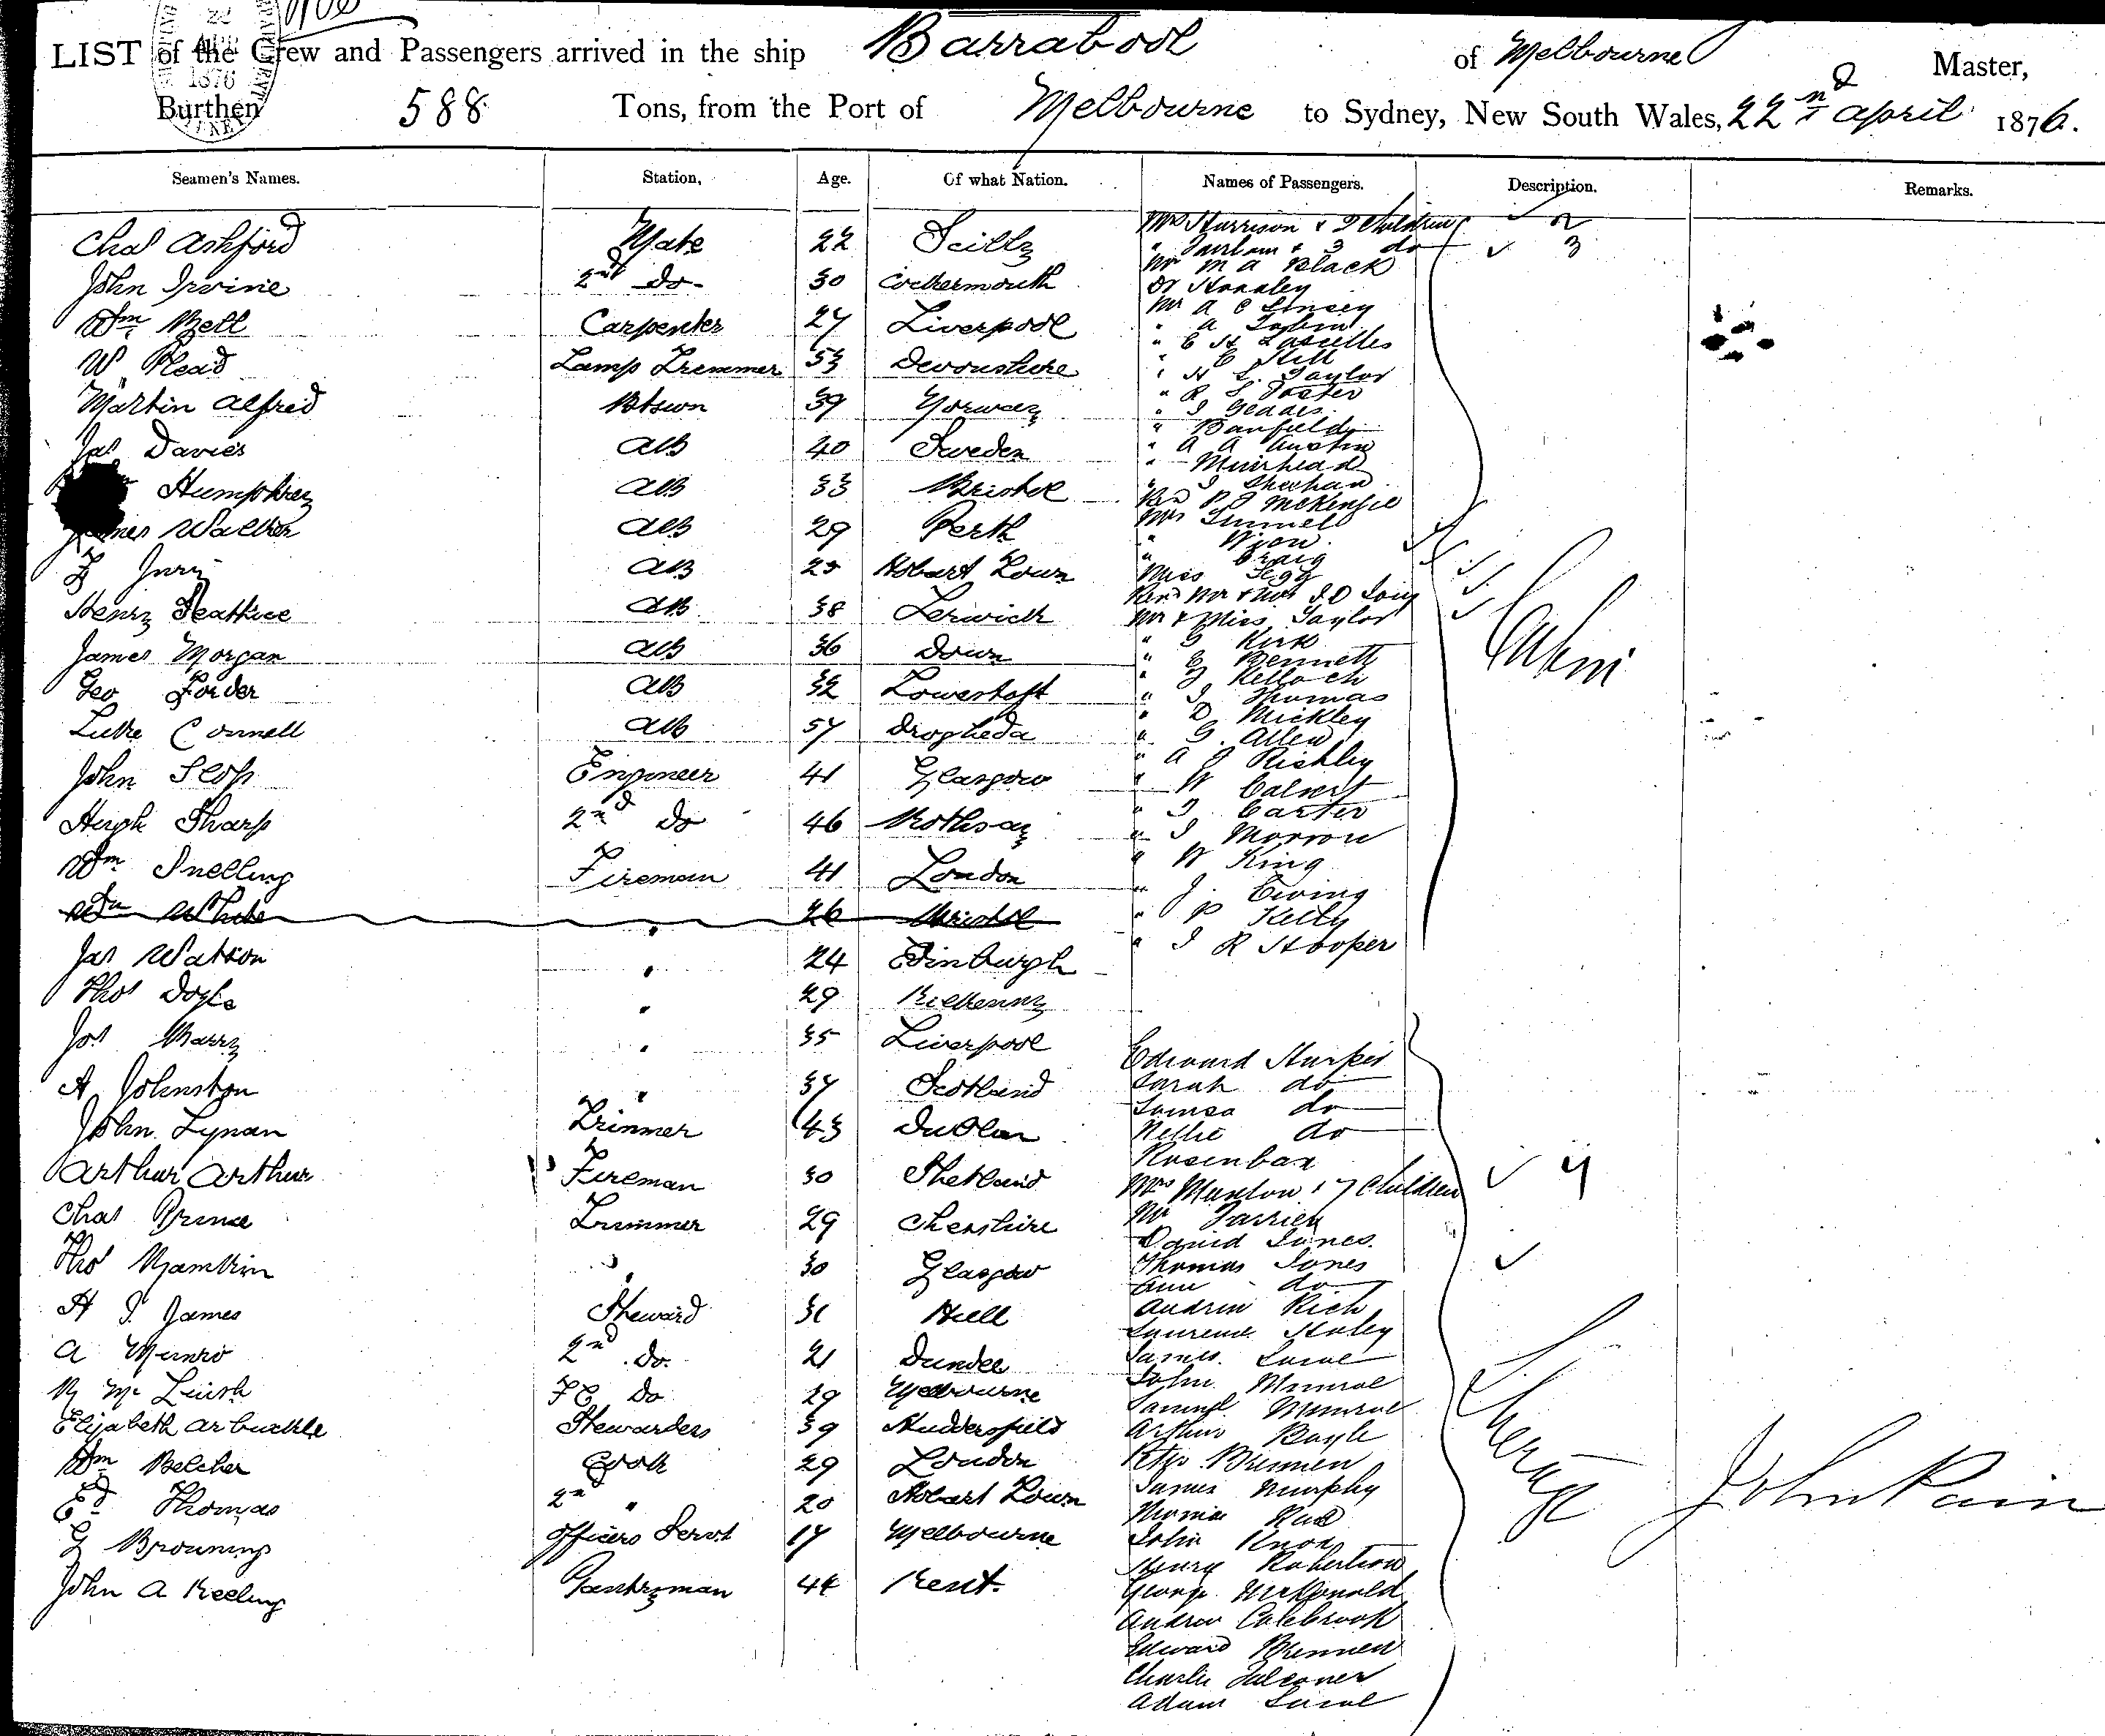 LIST of the Crew and Passengers arrived in the ship Barrabool of Melbourne Master,
Burthen 588 Tons, from the Port of Melbourne to Sydney, New South Wales, 22nd April 1876.
Seamen's Names. Station, Age. Of what Nation. Names of Passengers. Description. Remarks.
Chas Ashford Mate 22 Scilly
John Irvine 2nd Do 30 Cockermouth
Wm Bell Carpenter 27 Liverpool
W Read Lamp Tremmer 53 Devonshire
Martin Alfred Btswn 39 Norway
Jas Davies AB 40 Sweden
Humphrey AB 33 Bristol
James Walker AB 29 Perth
AB 25 Hobart Town
Henry AB 38 Lerwick
James Morgan AB 36 Down
Geo Forder AB 32 Lowestoft
Luke Connell AB 57 Drogheda
John Engineer 41 Glasgow
Hugh Sharp 2nd Do 46 Rothsay
Wm Snelling Fireman 41 London
Wm White " 26 Bristol
Jas Watson " 24 Edinburgh
Thos Doyle " 29 Kilkenny
Jos Barry " 35 Liverpool
A Johnston " 37 Scotland
John Lynan Trimmer 43 Dublin
Arthur Arthur Fireman 30 Shetland
Chas Prince Trimmer 29 Cheshire
Thos " 30 Glasgow
H J James Steward 31 Hull
A Munro 2nd Do 21 Dundee
R Mc Leish F C Do 29 Melbourne
Elizabeth Arbuckle Stewardess 39 Huddersfield
Wm Belcher Cook 29 London
Ed Thomas 2nd " 20 Hobart Town
G Browning Officers Servt 17 Melbourne
John A Keeling Pantryman 44 Kent.
Mrs Harrison & 2 Children 2
" Fairbam & 3 do 3
Mr M A Black
Dr
Mr A C Linsey
" A
" C H Lascelles
" C Hill
" H L Taylor
" R L Foster
" J Geddes
" Banfield
" A A Austin
" Muirhead
" J Sheehan
Revd P J McKenzie
Mrs
"
" Craig
Miss
Revd Mr & Mrs
Mr & Miss Taylor
" G Kirk
" G Bennett
"
" J Thomas
" D Mickley
" G Allen
" A J Rishley
" W Calvert
" J Carter
" J Morrow
" W King
" J. Ewing
" P Kelly
" J R Hooper
Cabin
Edward Harper
Sarah do
Louisa do
Nellie do
Mrs & 7 Children 7
Mr
David Jones
Thomas Jones
Ann do
Andrew Rich
Laurence Haley
James
John Munroe
Samuel Munroe
Arthur Boyle
Peter Brennen
James Murphy
Thomas
John Knox
Henry Robertson
George McDonald
Andrew Colebrook
Edward Brennen
Charlie Falconer
Adam
Steerage
John Pain